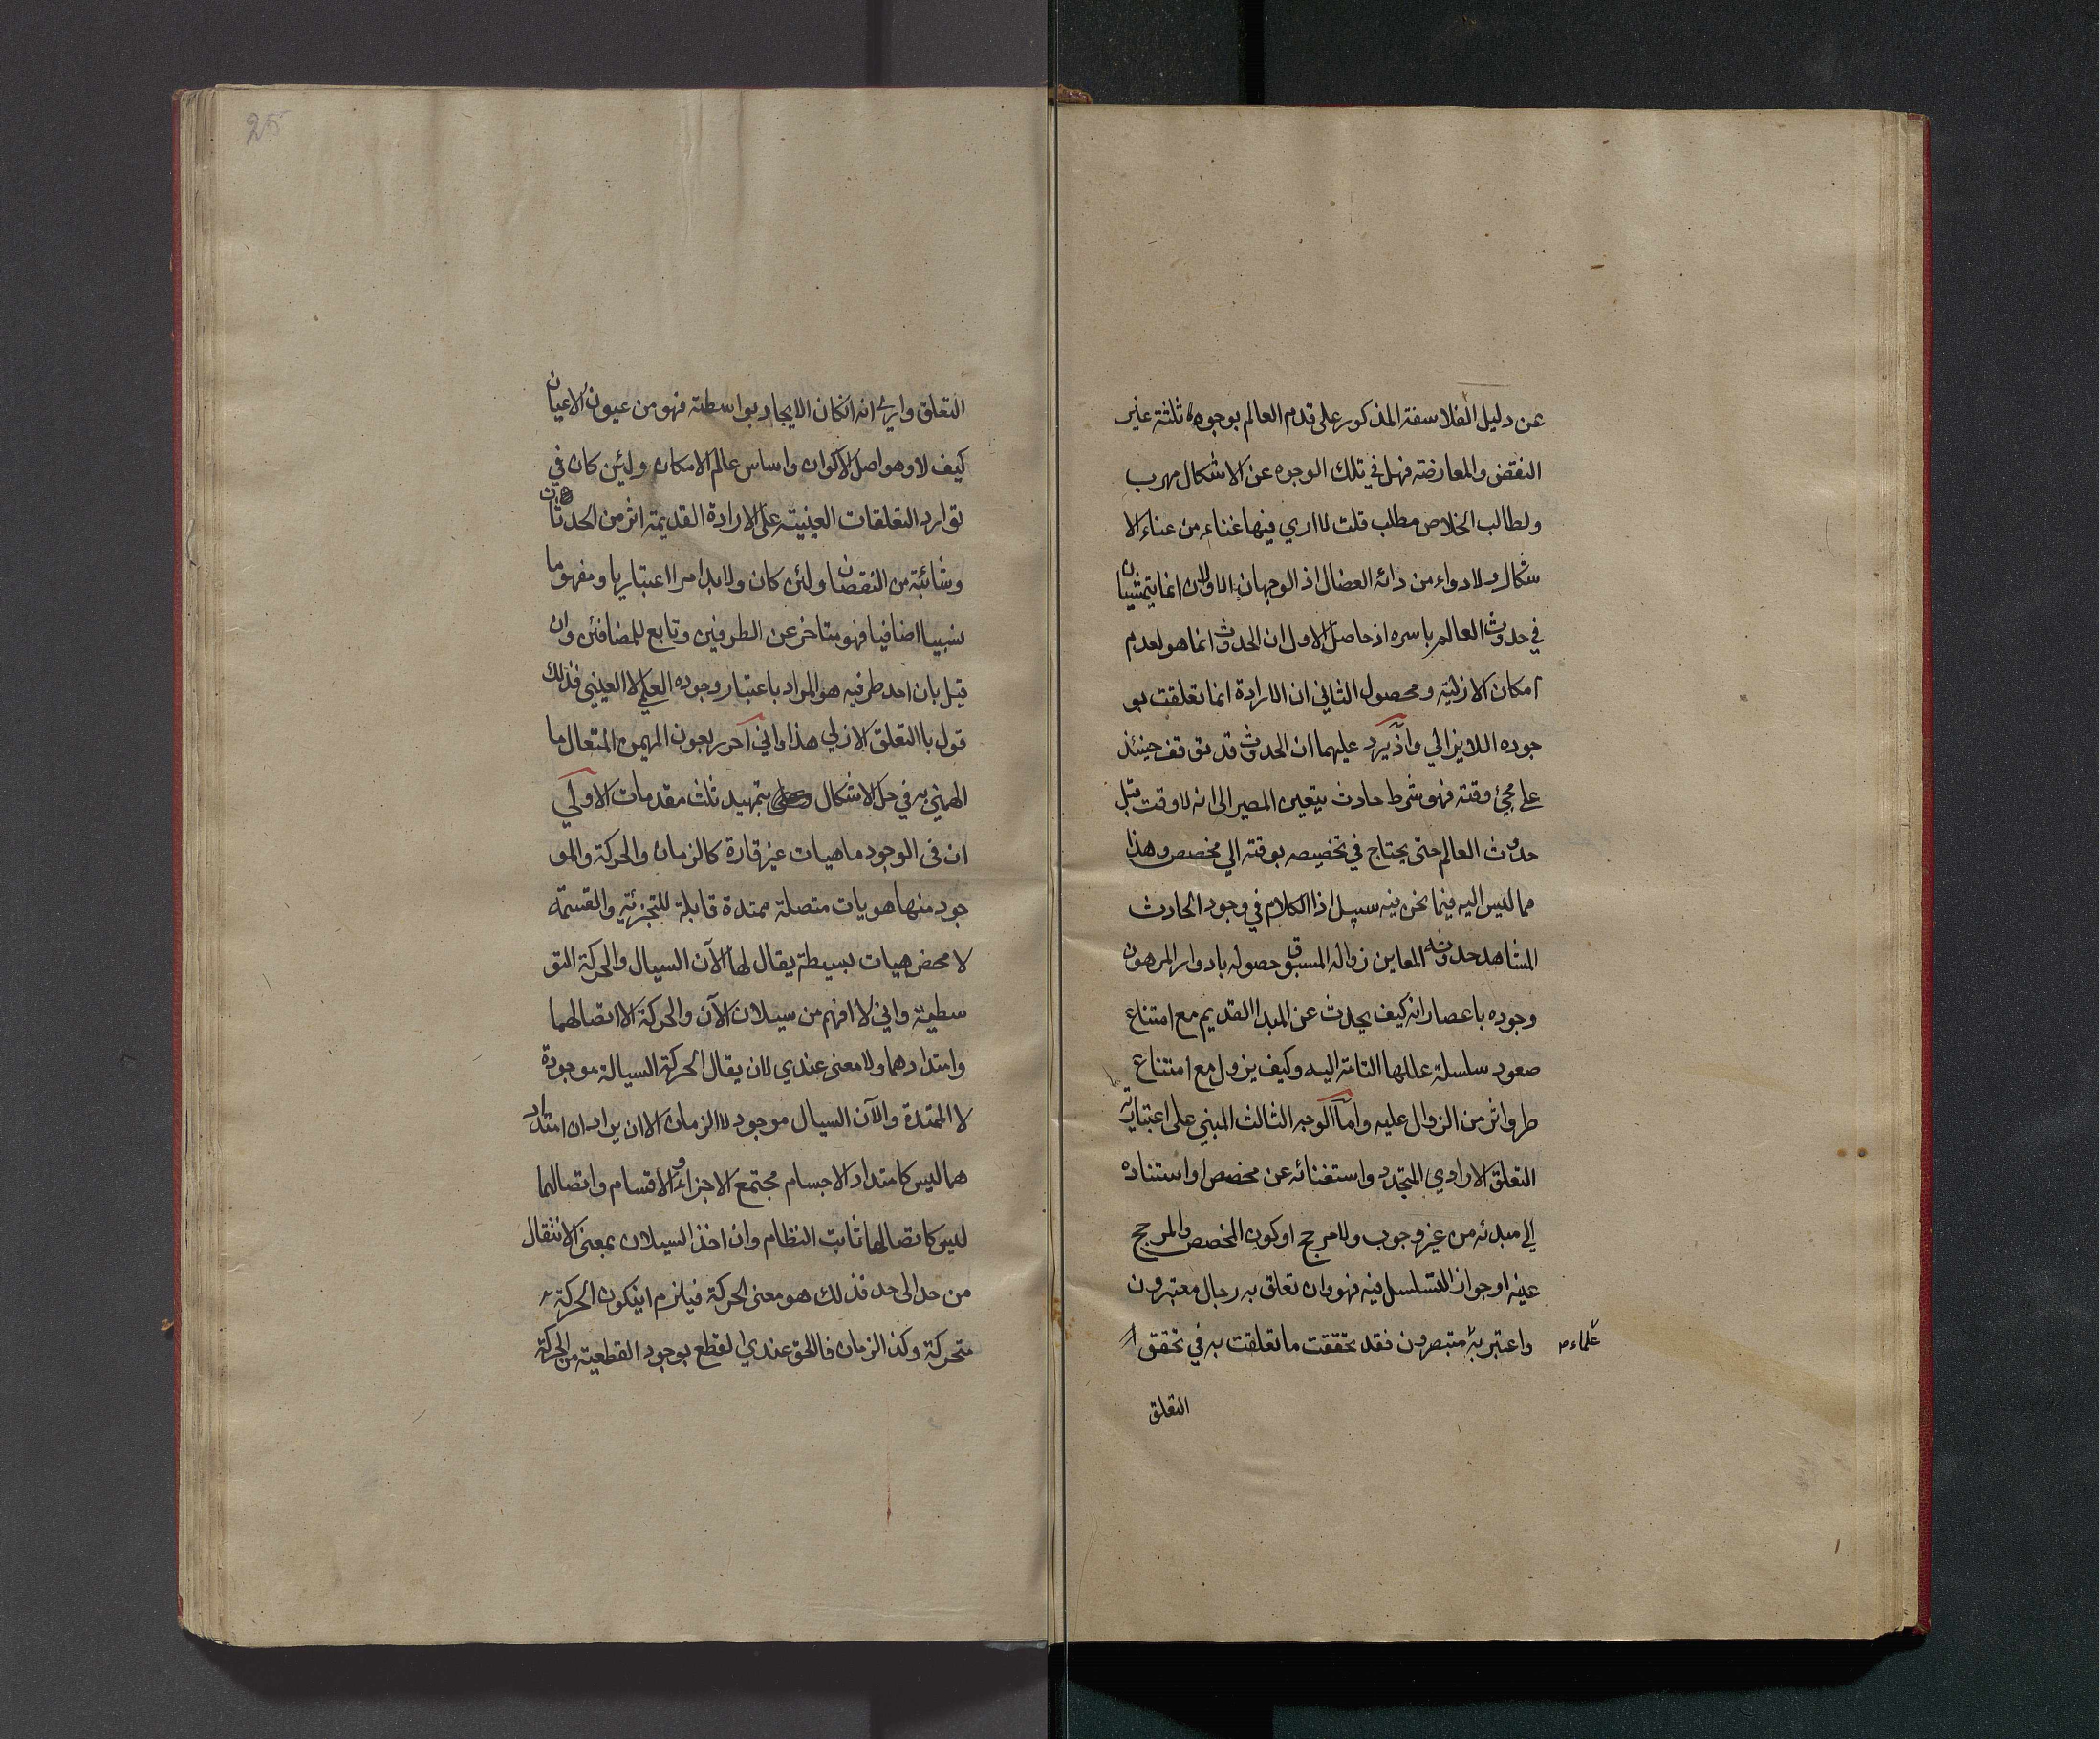 عن دليل الفلاسفة المذكور على قدم العالم بوجوه ثلثة غير
النقض والمعارضة فهل في تلك الوجوه عن الاشكال مهرب
ولطالب الخلاص مطلب قلت لااري فيها غناء من عناء الا
شكال ولادواء من دائه العضال اذ الوجهان الاولان انما يتمشيان
في حدوث العالم باسره اذ حاصل الاول ان الحدوث انما هو لعدم
امكان الازلية ومحصول الثاني ان الارادة انما تعلقت بو
جوده اللايزالي واذ يرد عليهما ان الحدوث قد توقف حينئذ
على مجئ وقته فهو شرط حادث يتعين المصير الى انه لاوقت قبل
حدوث العالم حتى يحتاج في تخصيصه بوقته الي مخصص وهذا
مما ليس اليه فيما نحن فيه سبيل اذ الكلام في وجود الحادث
المشاهد حدوثه المعاين زواله المسبوق حصوله بادوار المرهون
وجوده باعصار انه كيف يحدث عن المبدا القديم مع امتناع
صعود سلسلة عللها التامة اليه وكيف يزول مع امتناع
طرو اثر من الزوال عليه واما الوجه الثالث المبني على اعتبارية
التعلق الارادي المتجدد واستغنائه عن مخصص او استناده
الي مبدئه من غير وجوب ولامرجح او كون المخصص والمرجح
عينه او جواز التسلسل فيه فهو وان تعلق به رجال معتبرون
واعتبر به متبصرون فقد تحققت ما تعلقت به في تحقق
علماء
التعلق
25
التعلق واري انه انكان الايجاد بواسطته فهو من عيون الاعيان
كيف لا وهو اصل الاكوان واساس عالم الامكان ولئن كان في
توارد التعلقات العينية على الارادة القديمة اثر من الحدثان
وشائبة من النقصان ولئن كان ولابد امرا اعتباريا ومفهوما
نسبيا اضافيا فهو متاخر عن الطرفين وتابع للمضافين وان
قيل بان احد طرفيه هو المراد باعتبار وجوده العلمي لا العيني فذلك
قول باالتعلق الازلي هذا واني احرر بعون المهيمن المتعال ما
الهمني به في حل الاشكال بتمهيد ثلث مقدمات الاولي
ان في الوجود ماهيات غير قارة كالزمان والحركة والمو
جود منها هويات متصلة ممتدة قابلة للتجزئة والقسمة
لا محض هيات بسيطة يقال لها الآن السيال والحركة التو
سطية واني لا افهم من سيلان الآن والحركة الا اتصالهما
وامتدادهما ولا معنى عندي لان يقال الحركة السيالة موجودة
لا الممتدة والآن السيال موجود لا الزمان الا ان يراد ان امتداد
هما ليس كامتداد الاجسام مجتمع الاجزاء والاقسام واتصالهما
ليس كاتصالها ثابت النظام وان اخذ السيلان بمعنى الانتقال
من حد الى حد فذلك هو معنى الحركة فيلزم اينكون الحركة
متحركة وكذا الزمان فالحق عندي القطع بوجود القطعية من الحركة